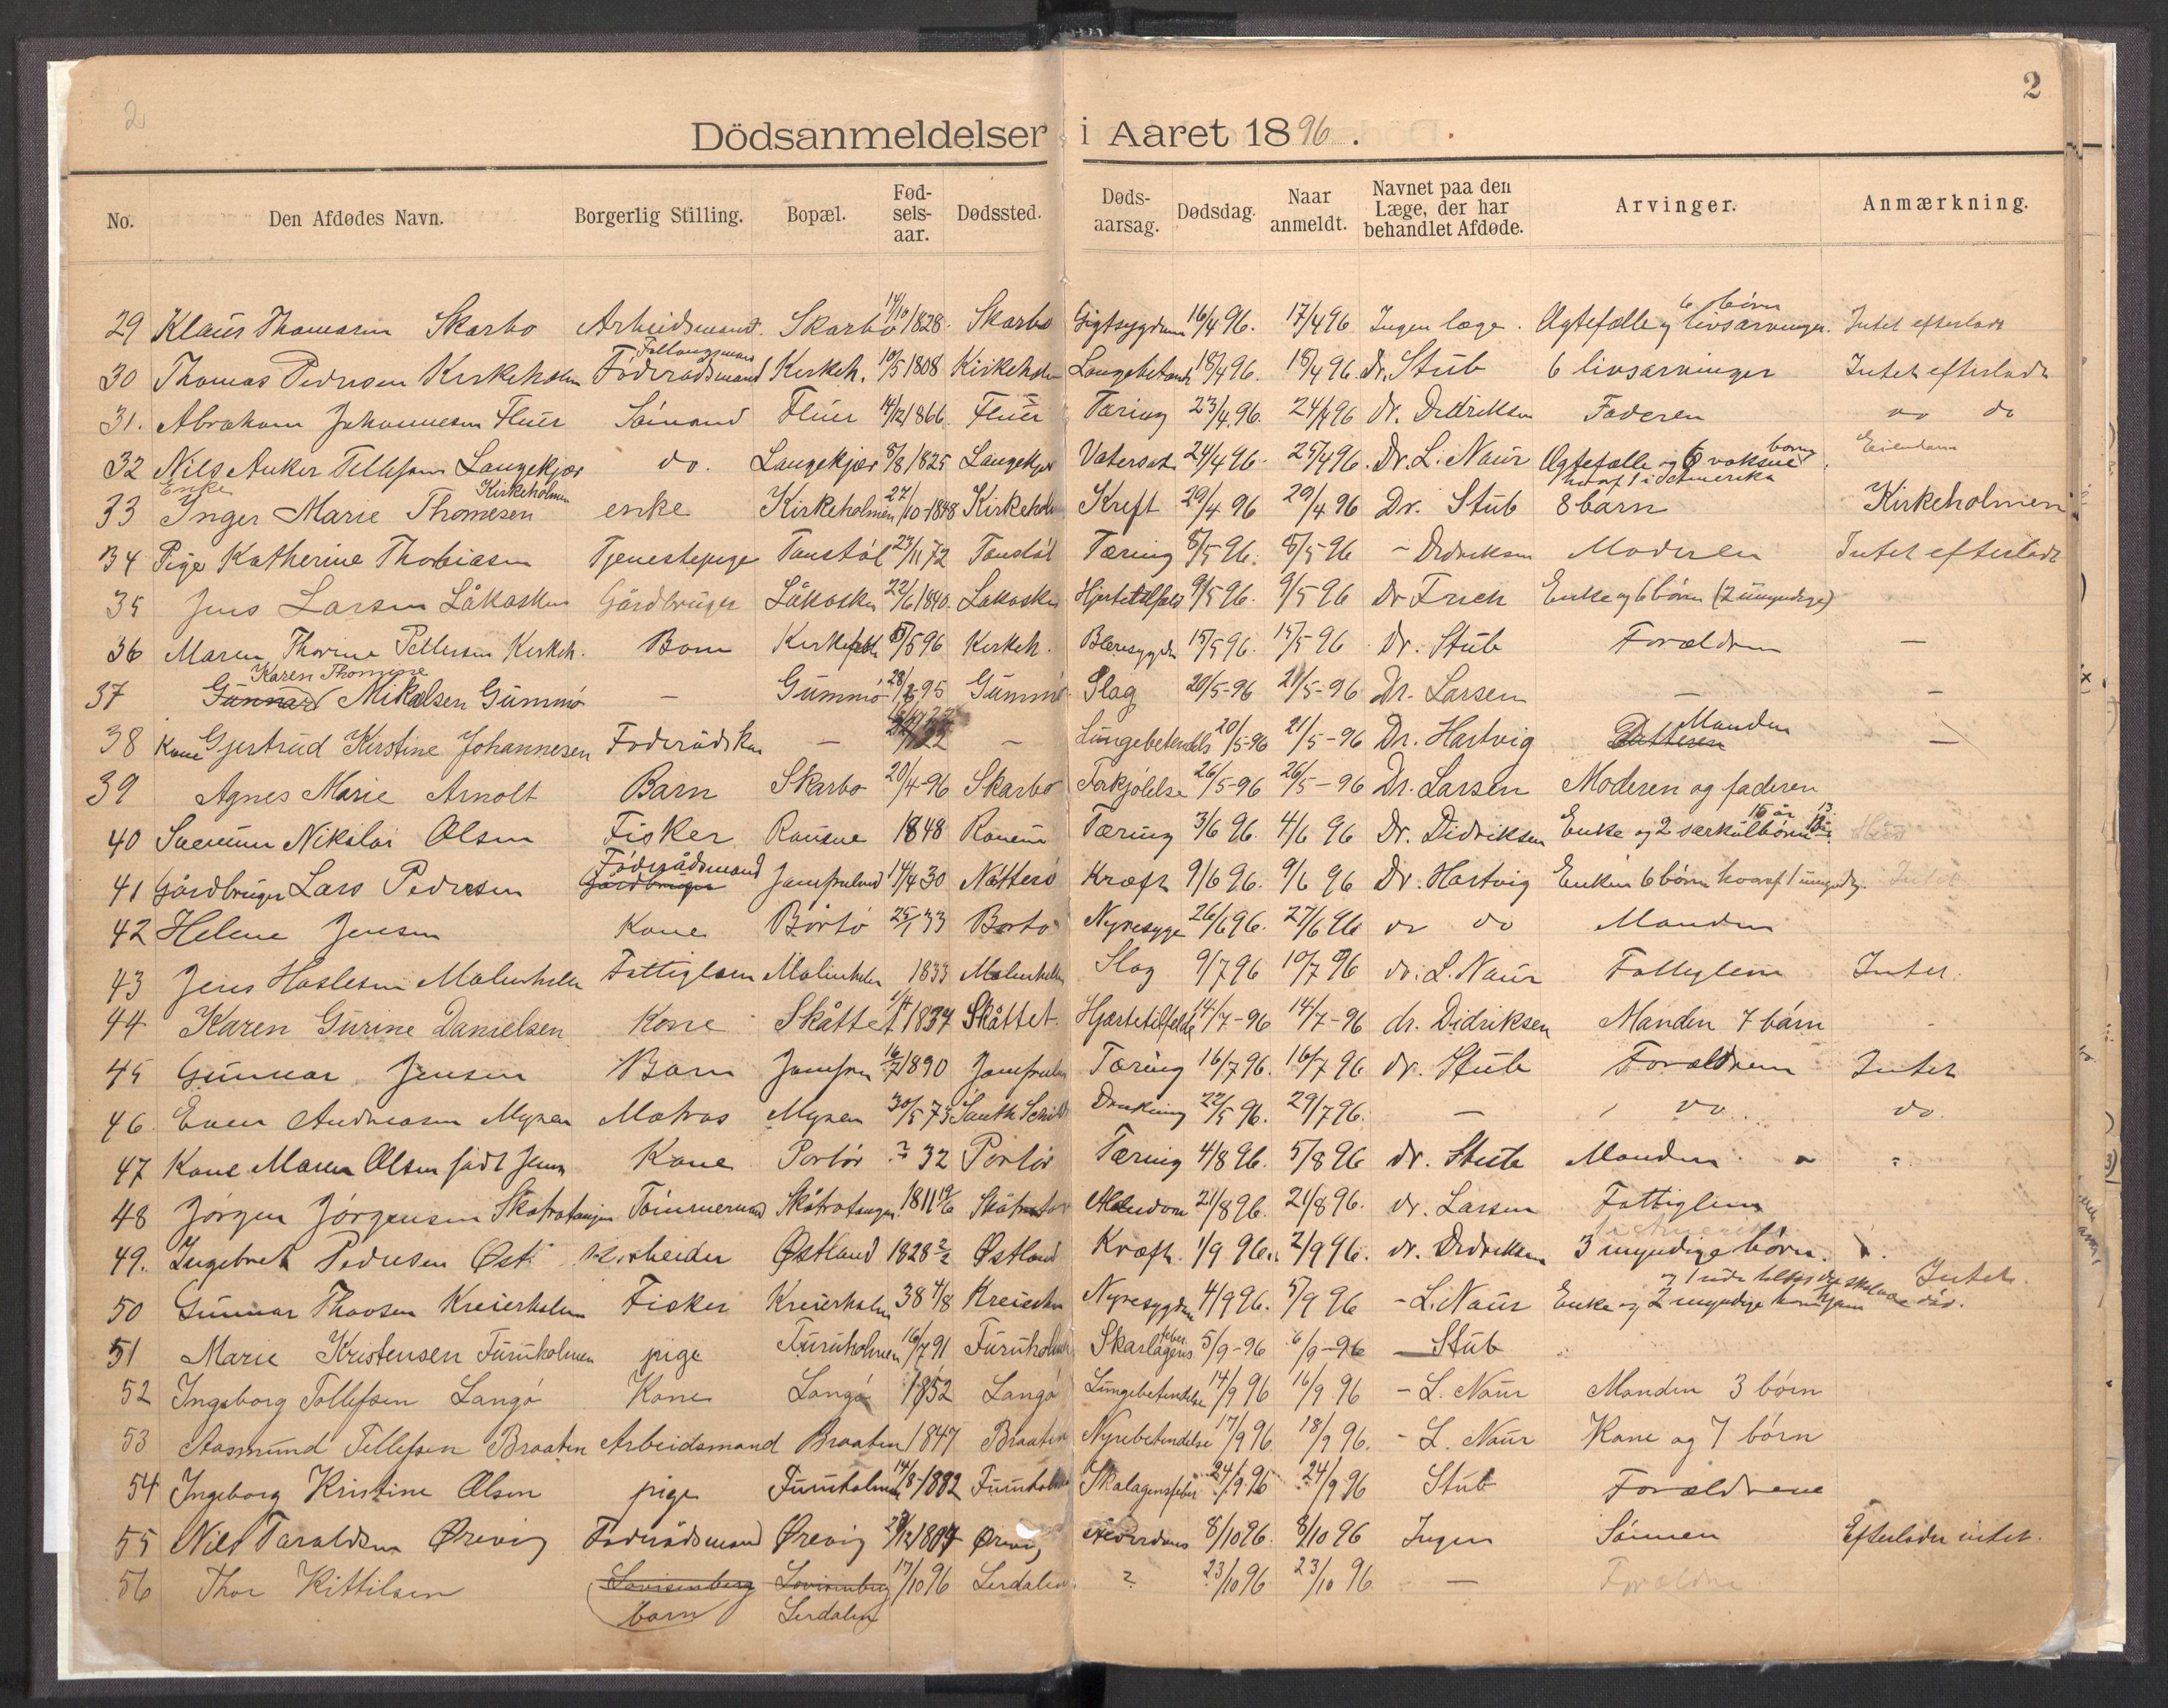 2
2
Dödsanmeldelser i Aaret 1896.
No. Den Afdødes Navn. Borgerlig Stilling. Bopæl. Fødselsaar. Dødssted. Dødsaarsag. Dødsdag. Naar anmeldt. Navnet paa den Læge, der har behandlet Afdøde. Arvinger. Anmærkning.
29 Klaus Thomasen Skarbo Arbeidsmand. Skarbo 14/10 1828. Skarbo Gigtsygdom 16/4 96. 17/4 96 Ingen læge. Ægtefælle og 6 børn livsarvinger. Intet efterladt
30 Thomas Pedersen Kirkeholm Föderådsmand Kirkeh. 10/5 1808 Kirkeholm Lungebetend 18/4 96. 18/4 96. Dr. Stub 6 livsarvinger Intet efterladt
31. Abraham Johannesen Fluer Sömand Fluer 14/12 1866. Fluer Tæring 23/4 96. 24/4 96 Dr. Didriksen Faderen do do
32 Nils Anker Tellefsen Langekjær do. Langekjær 8/8 1825 Langekjær Vatersot 24/4 96. 25/4 96. Dr. L. Naur Ægtefælle og 6 voksne børn hvoraf 1 i Amerika Eiendom
33 Enke Inger Marie Thomesen Kirkeholmen enke Kirkeholmen 27/10-1848 Kirkeholm Kreft 29/4 96 29/4 96 Dr. Stub 8 barn Kirkeholmen
34 Pige Katherine Thobiasen Tjenestepige Tonstöl 23/11 72 Tonstöl Tæring 8/5 96. 8/5 96 - Didriksen Moderen Intet efterladt
35 Jens Larsen Låkasken Gårdbruger Låkasken 22/6 1840. Låkasken Hjertetilfæld 9/5 96. 9/5 96 Dr Frich Enke og 6 børn (2 umyndige)
36 Maren Thorine Pettersen Kirkeh. Barn Kirkeholm /5 96 Kirkeh. Blæresygdom 15/5 96. 15/5 96 Dr. Stub Forældren —
37 Karen Thomine Gunnar Mikalsen Gummö — Gummö 28/8-95 Gummö. Slag 20/5-96 21/5-96 Dr. Larsen — —
38 Kone Gjertrud Kirstine Johannesen Foderådskone — — Lungebetendels 20/5-96 21/5-96 Dr. Hartvig Datteren Manden —
39 Agnes Marie Arnolt Barn Skarbo 20/4-96 Skarbo Forkjölelse 26/5-96 26/5-96 Dr. Larsen Moderen og faderen
40 Nikolai Olsen Fisker 1848 Tæring 3/6 96. 4/6 96 Dr. Didriksen Enke og 2 særkulbørn 16 år
41 Gårdbruger Lars Pedersen Föderådsmand Gårdbruger Jomfrulund 14/4 30 Nötterö Kræft 9/6 96. 9/6 96 Dr. Hartvig Enken 6 børn hvoraf 1 umyndig. Intet
42 Helene Jensen Kone Börtö 25/1 33 Bortö Nyresyge 26/6 96. 27/6 96 do do Manden
43 Jens Haslesen Malmhelle Fattiglem Malmhelle 1833 Malmhelle Slag 9/7 96 10/7 96 dr. L. Naur Fattiglem Intet.
44 Karen Gurine Danielsen Kone Skåttet 1/4 1834 Skåttet. Hjærtetilfelde 14/7-96 14/7-96 dr. Didriksen Manden 7 barn
45 Gunnar Jensen Barn Jomfru 16/7 1890 Jomfrulan Tæring 16/7 96. 16/7 96 dr. Stub Forældrene Intet
46. Even Andreasen Myren Matros Myren 30/5 73 South Schild Drukning 22/5 96. 29/7 96. — do. do.
47 Kone Maren Olsen född Jens Kone Portör ? 32 Portör Tæring 4/8 96. 5/8 96 dr. Stub Manden
48 Jörgen Jörgensen Skåtratangen Tömmermand Skåtratangen 1811 19/6 Skåtratan Alderdom 21/8 96. 21/8 96. dr. Larsen Fattiglem
49. Ingebret Pedersen Øst. Arbeider Østland 1828 2/2 Østland Kræft. 1/9 96. 2/9 96. dr. Didriksen 3 myndige børn. 1 i Amerika
50 Gunnar Thorsen Kreierholm Fisker Kreierholm 38 4/8 Kreierhm Nyresygdom 4/9 96. 5/9 96 - L. Naur Enke og 2 myndige børn Intet.
51 Marie Kristensen Furuholmen pige Furuholmen 16/7 91 Furuholmen Skarlagensfeber 5/9-96 6/9-96 — Stub
52 Ingeborg Tollefsen Langö Kone Langö 1852 Langö Lungebetendelse 14/9 96 16/9 96 - L. Naur Manden 3 börn
53 Aasmund Tellefsen Braaten Arbeidsmand Braaten 1847 Braaten Nyrebetendelse 17/9 96. 18/9 96. - L. Naur Kone og 7 börn
54 Ingeborg Kristine Olsen pige Furuholmen 14/8-1882 Furuholmen Skalagensfeber 24/9-96 24/9 96 Stub Forældrene
55 Nils Taraldsen Ørevig Foderådsmand Ørevig 1807 Ørevig Alderdoms 8/10 96. 8/10 96 Ingen Sönnen Efterlader intet.
56 Thor Kittilsen Lovisenberg Lovisenberg 17/10 96 Lerdalen ? 23/10 96 23/10 96. — Forældre
barn Lerdalen